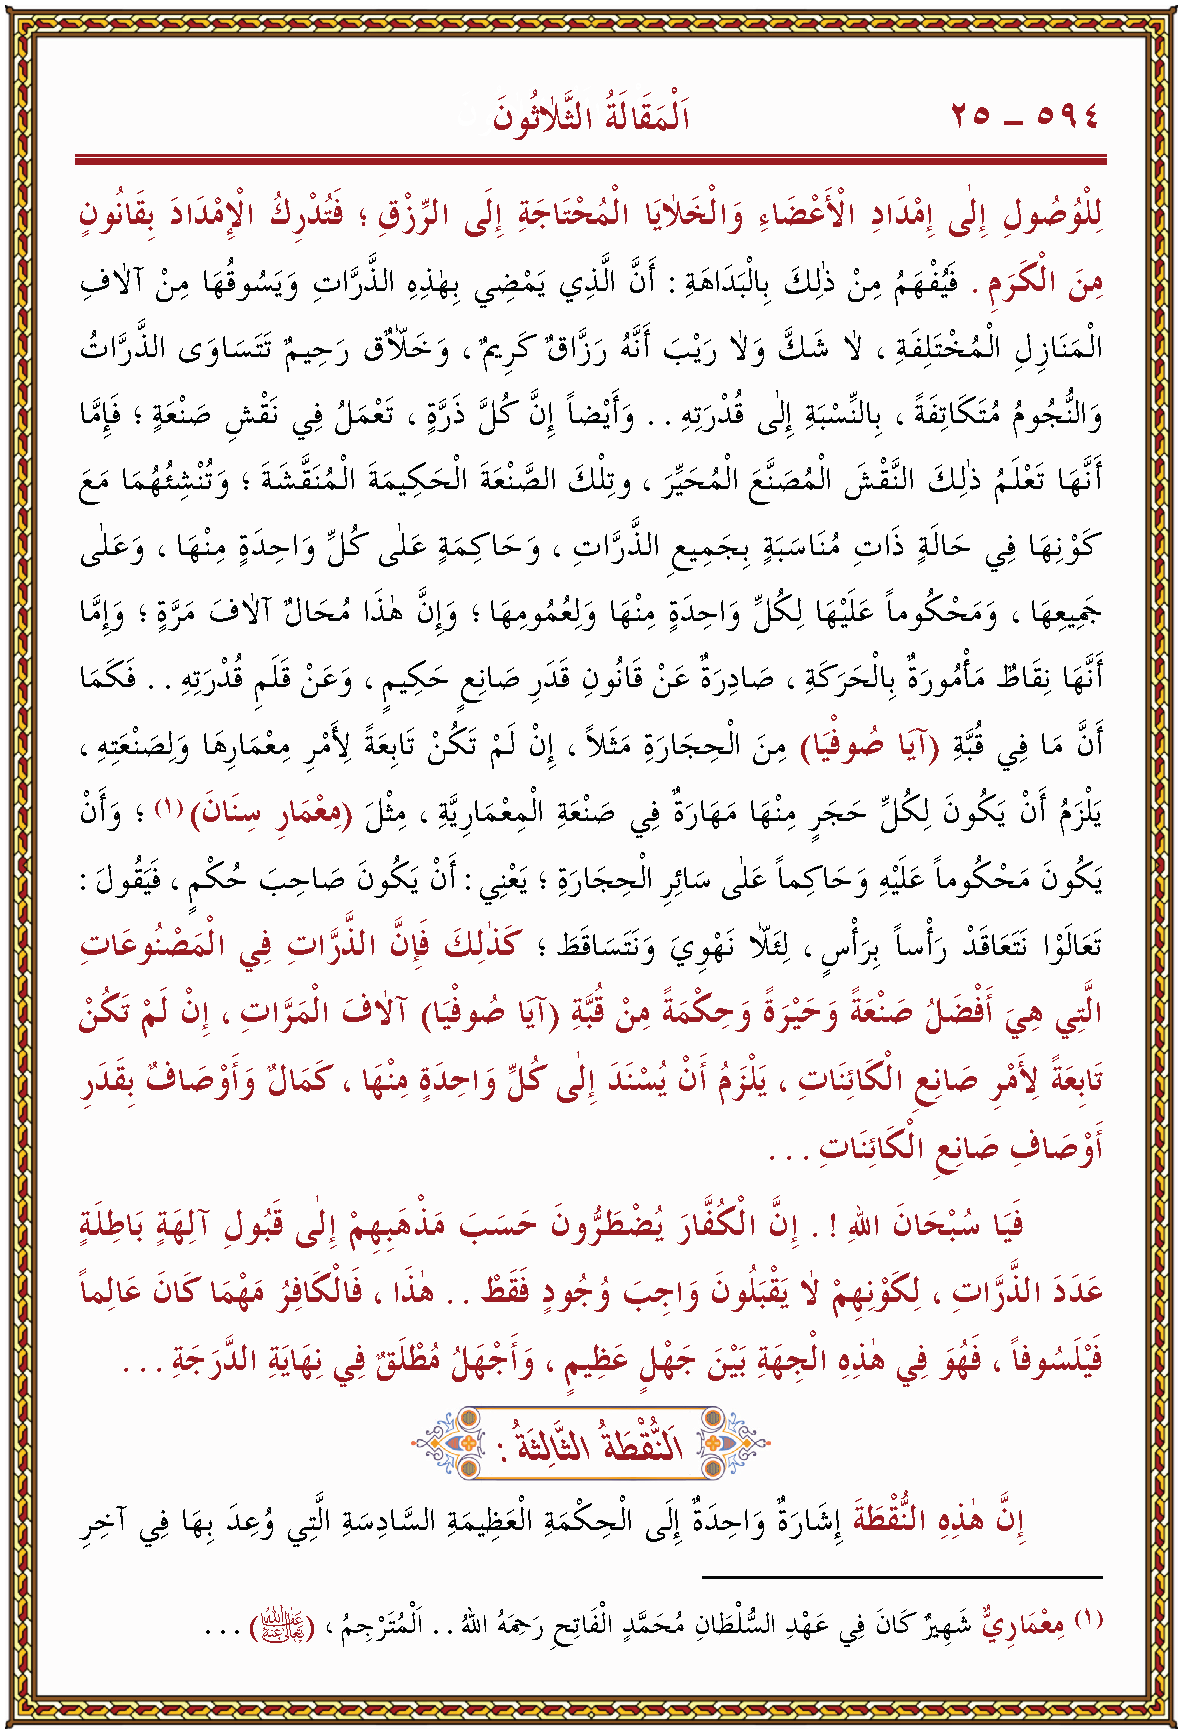 ٥٩٤ – ٢٥ اَلْمَقَالَةُ الثَّلَاثُونَ
لِلْوُصُولِ إِلٰى إِمْدَادِ الْأَعْضَاءِ وَالْخَلَايَا الْمُحْتَاجَةِ إِلَى الرِّزْقِ ؛ فَتُدْرِكُ الْإِمْدَادَ بِقَانُونٍ
مِنَ الْكَرَمِ . فَيُفْهَمُ مِنْ ذٰلِكَ بِالْبَدَاهَةِ : أَنَّ الَّذِي يَمْضِي بِهٰذِهِ الذَّرَّاتِ وَيَسُوقُهَا مِنْ آلَافِ
الْمَنَازِلِ الْمُخْتَلِفَةِ ، لَا شَكَّ وَلَا رَيْبَ أَنَّهُ رَزَّاقٌ كَرِيمٌ ، وَخَلَّاقٌ رَحِيمٌ تَتَسَاوَى الذَّرَّاتُ
وَالنُّجُومُ مُتَكَاتِفَةً ، بِالنِّسْبَةِ إِلٰى قُدْرَتِهِ . . وَأَيْضاً إِنَّ كُلَّ ذَرَّةٍ ، تَعْمَلُ فِي نَقْشِ صَنْعَةٍ ؛ فَإِمَّا
أَنَّهَا تَعْلَمُ ذٰلِكَ النَّقْشَ الْمُصَنَّعَ الْمُحَيِّرَ ، وتِلْكَ الصَّنْعَةَ الْحَكِيمَةَ الْمُنَقَّشَةَ ؛ وَتُنْشِئُهُمَا مَعَ
كَوْنِهَا فِي حَالَةٍ ذَاتِ مُنَاسَبَةٍ بِجَمِيعِ الذَّرَّاتِ ، وَحَاكِمَةٍ عَلٰى كُلِّ وَاحِدَةٍ مِنْهَا ، وَعَلٰى
جَمِيعِهَا ، وَمَحْكُوماً عَلَيْهَا لِكُلِّ وَاحِدَةٍ مِنْهَا وَلِعُمُومِهَا ؛ وَإِنَّ هٰذَا مُحَالٌ آلَافَ مَرَّةٍ ؛ وَإِمَّا
أَنَّهَا نِقَاطٌ مَأْمُورَةٌ بِالْحَرَكَةِ ، صَادِرَةٌ عَنْ قَانُونِ قَدَرِ صَانِعٍ حَكِيمٍ ، وَعَنْ قَلَمِ قُدْرَتِهِ . . فَكَمَا
أَنَّ مَا فِي قُبَّةِ (آيَا صُوفْيَا) مِنَ الْحِجَارَةِ مَثَلاً ، إِنْ لَمْ تَكُنْ تَابِعَةً لِأَمْرِ مِعْمَارِهَا وَلِصَنْعَتِهِ ،
يَلْزَمُ أَنْ يَكُونَ لِكُلِّ حَجَرٍ مِنْهَا مَهَارَةٌ فِي صَنْعَةِ الْمِعْمَارِيَّةِ ، مِثْلَ (مِعْمَارِ سِنَانَ) (١) ؛ وَأَنْ
يَكُونَ مَحْكُوماً عَلَيْهِ وَحَاكِماً عَلٰى سَائِرِ الْحِجَارَةِ ؛ يَعْنِي : أَنْ يَكُونَ صَاحِبَ حُكْمٍ ، فَيَقُولَ :
تَعَالَوْا نَتَعَاقَدْ رَأْساً بِرَأْسٍ ، لِئَلَّا نَهْوِيَ وَنَتَسَاقَطَ ؛ كَذٰلِكَ فَإِنَّ الذَّرَّاتِ فِي الْمَصْنُوعَاتِ
الَّتِي هِيَ أَفْضَلُ صَنْعَةً وَحَيْرَةً وَحِكْمَةً مِنْ قُبَّةِ (آيَا صُوفْيَا) آلَافَ الْمَرَّاتِ ، إِنْ لَمْ تَكُنْ
تَابِعَةً لِأَمْرِ صَانِعِ الْكَائِنَاتِ ، يَلْزَمُ أَنْ يُسْنَدَ إِلٰى كُلِّ وَاحِدَةٍ مِنْهَا ، كَمَالٌ وَأَوْصَافٌ بِقَدَرِ
أَوْصَافِ صَانِعِ الْكَائِنَاتِ . . .
فَيَا سُبْحَانَ اللهِ ! . إِنَّ الْكُفَّارَ يُضْطَرُّونَ حَسَبَ مَذْهَبِهِمْ إِلٰى قُبُولِ آلِهَةٍ بَاطِلَةٍ
عَدَدَ الذَّرَّاتِ ، لِكَوْنِهِمْ لَا يَقْبَلُونَ وَاجِبَ وُجُودٍ فَقَطْ . . هٰذَا ، فَالْكَافِرُ مَهْمَا كَانَ عَالِماً
فَيْلَسُوفاً ، فَهُوَ فِي هٰذِهِ الْجِهَةِ بَيْنَ جَهْلٍ عَظِيمٍ ، وَأَجْهَلُ مُطْلَقٌ فِي نِهَايَةِ الدَّرَجَةِ . . .
اَلنُّقْطَةُ الثَّالِثَةُ :
إِنَّ هٰذِهِ النُّقْطَةَ إِشَارَةٌ وَاحِدَةٌ إِلَى الْحِكْمَةِ الْعَظِيمَةِ السَّادِسَةِ الَّتِي وُعِدَ بِهَا فِي آخِرِ
(١) مِعْمَارِيٌّ شَهِيرٌ كَانَ فِي عَهْدِ السُّلْطَانِ مُحَمَّدٍ الْفَاتِحِ رَحِمَهُ اللهُ . . اَلْمُتَرْجِمُ ، () . . .